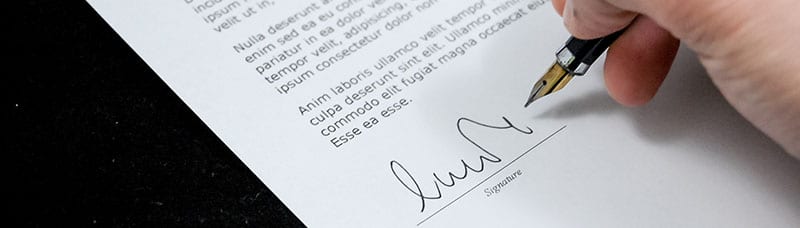 ipsum
velit ut in,
Nulla deserunt
enim sed ea eu
pariatur in ea dolor
tempor velit, adipisicing,
ipsum consectetur dolor
Anim laboris ullamco velit tempor
culpa deserunt sint elit. Ullamco minim
commodo elit fugiat magna occaecat
Esse ea esse.
Signature